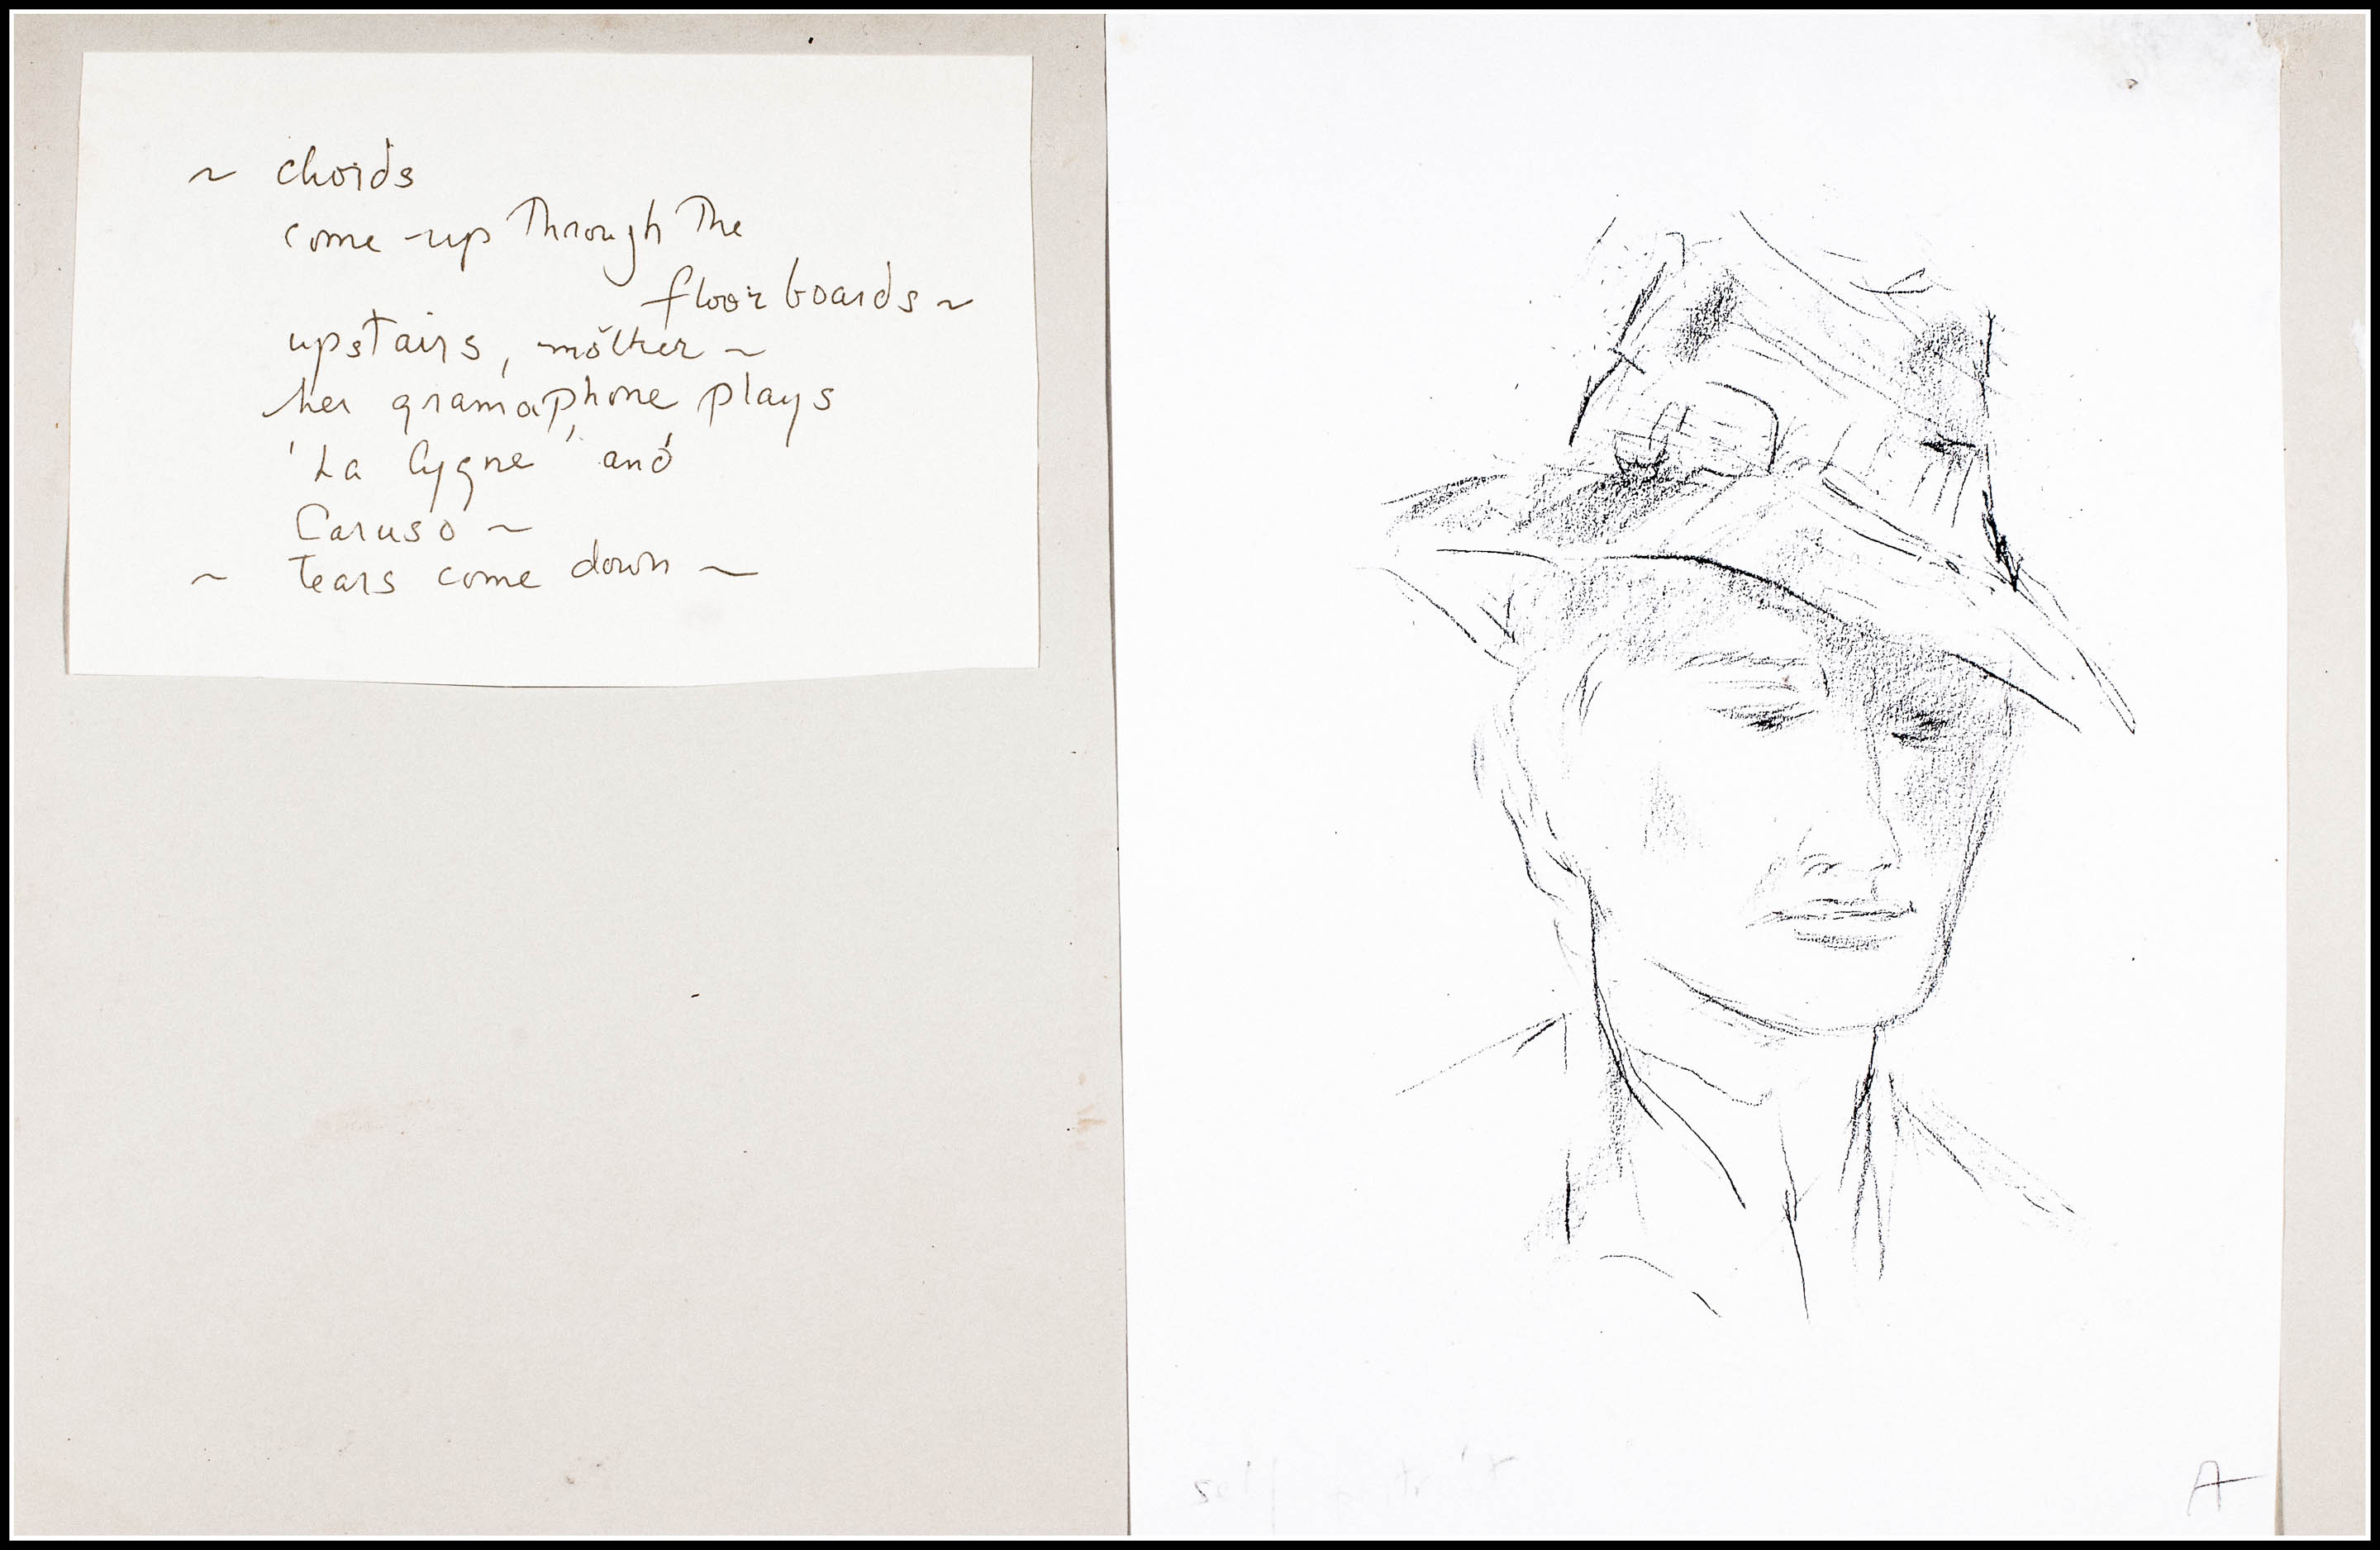 ~ chords
come up through the
floor boards ~
upstairs, mother ~
her gramaphone plays
'La Cygne' and
Caruso ~
~ tears come down ~
self portrait
A